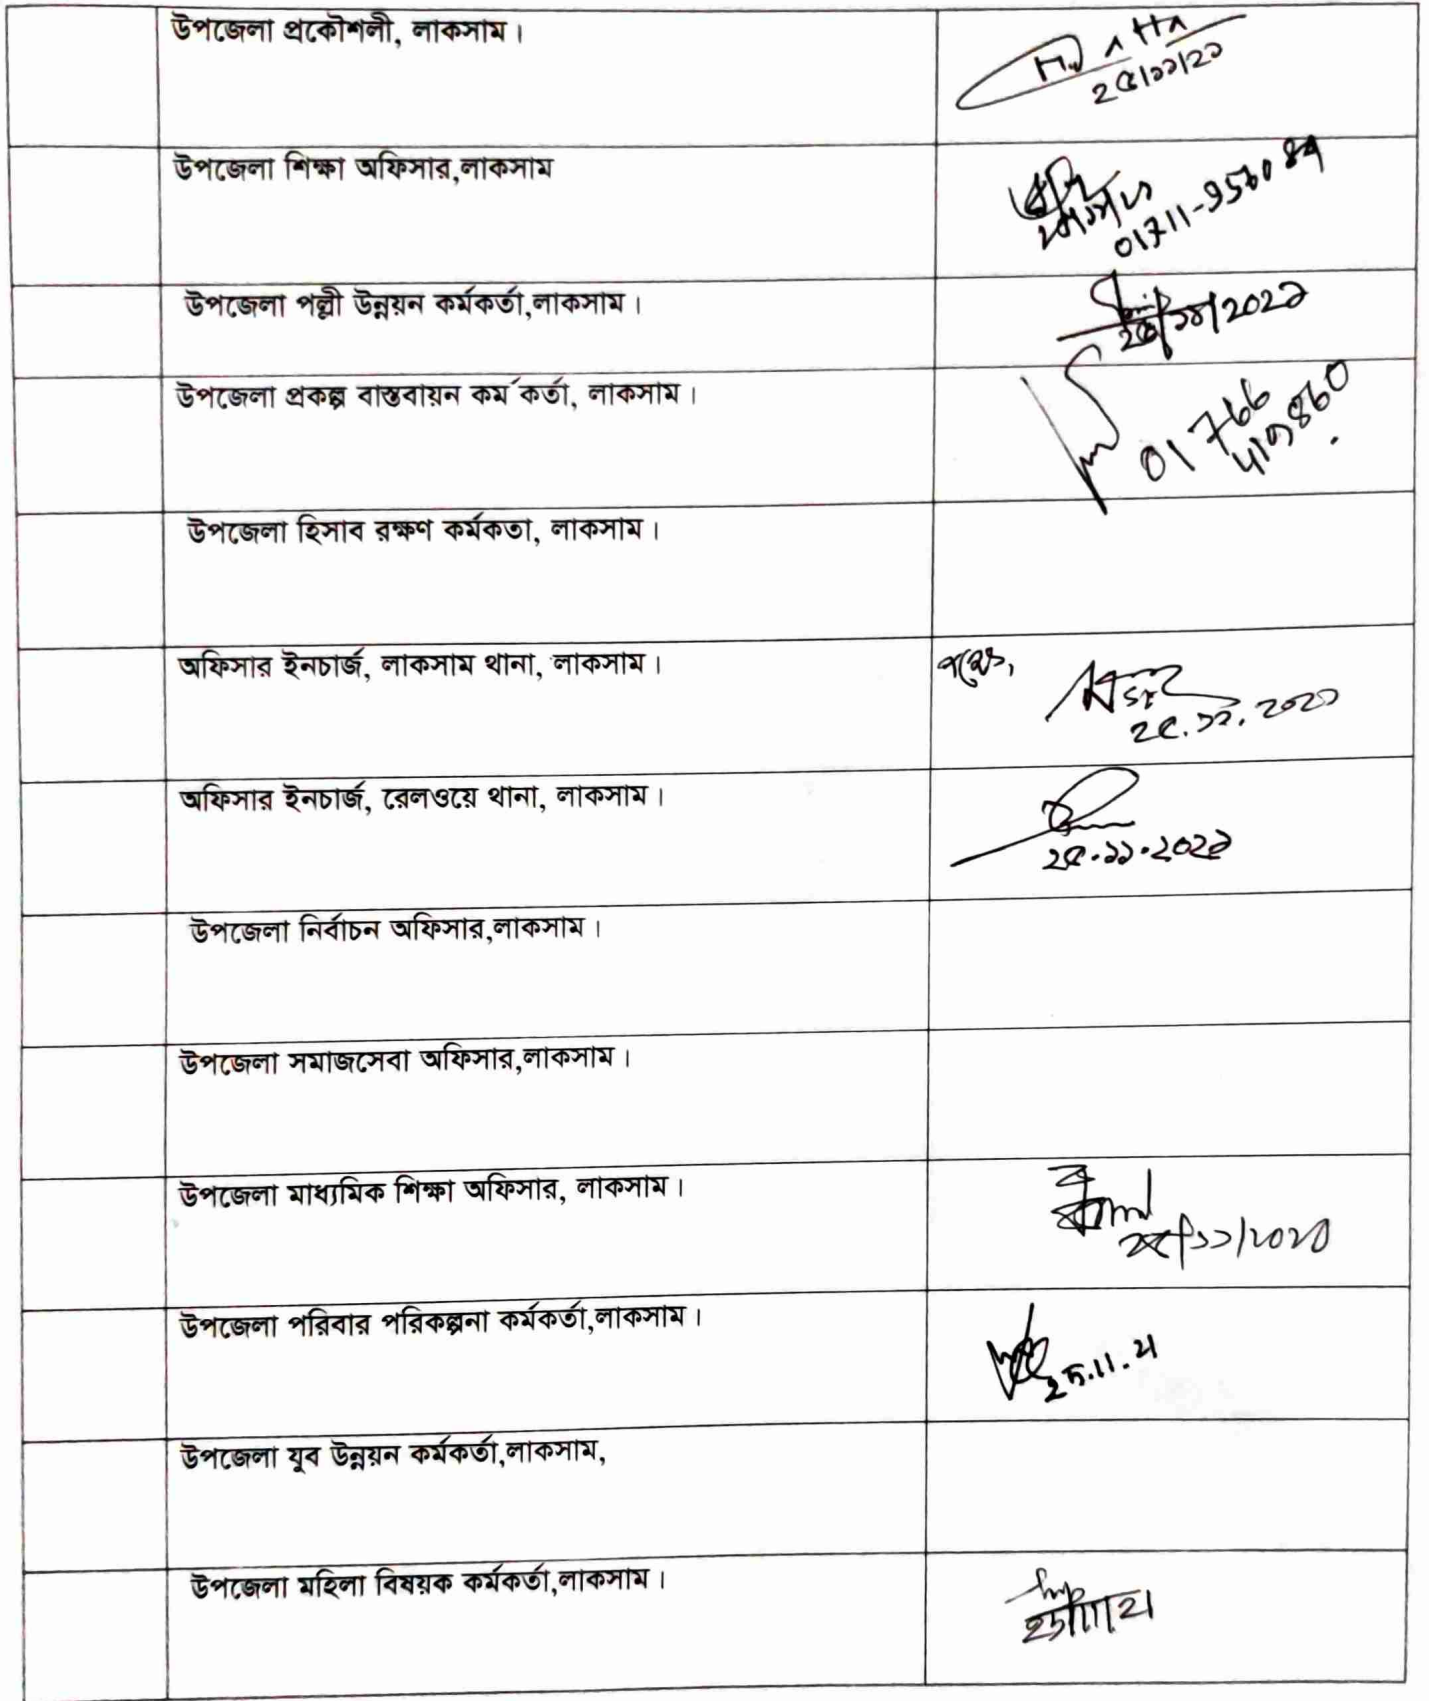 উপজেলা প্রকৌশলী, লাকসাম।
২৫/১১/২১
উপজেলা শিক্ষা অফিসার,লাকসাম
উপজেলা পল্লী উন্নয়ন কর্মকর্তা,লাকসাম।
উপজেলা প্রকল্প বাস্তবায়ন কর্ম কর্তা, লাকসাম।
01766
উপজেলা হিসাব রক্ষণ কর্মকতা, লাকসাম।
অফিসার ইনচার্জ, লাকসাম থানা, লাকসাম।
২৫.১১.২০২১
অফিসার ইনচার্জ, রেলওয়ে থানা, লাকসাম।
২৫.১১.২০২১
উপজেলা নির্বাচন অফিসার,লাকসাম।
উপজেলা সমাজসেবা অফিসার,লাকসাম।
উপজেলা মাধ্যমিক শিক্ষা অফিসার, লাকসাম।
উপজেলা পরিবার পরিকল্পনা কর্মকর্তা,লাকসাম।
25.11.21
উপজেলা যুব উন্নয়ন কর্মকর্তা,লাকসাম,
উপজেলা মহিলা বিষয়ক কর্মকর্তা,লাকসাম।
25/11/21